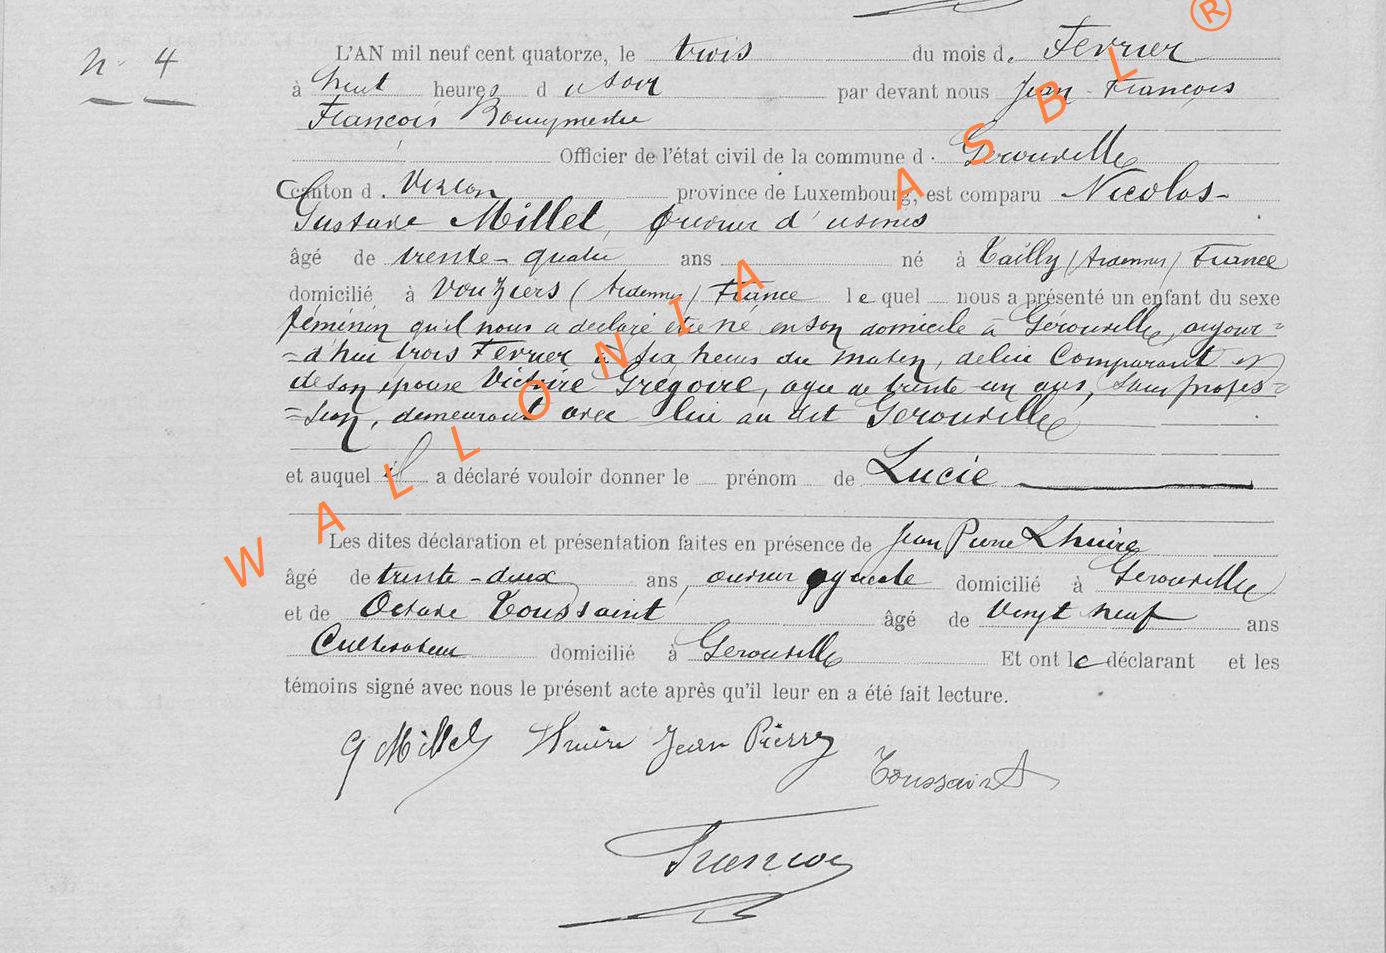 N° 4
L'AN mil neuf cent quatorze, le trois du mois de Fevrier
à heures d u soir par devant nous Jean-François
François Bourgmestre
Officier de l'état civil de la commune d Gérouville
Canton d Virton province de Luxembourg, est comparu Nicolas-
Gustave Millet, ouvrier d'usines
âgé de trente-quatre ans né à Tailly (Ardennes) France
domicilié à Vouziers (Ardennes) France lequel nous a présenté un enfant du sexe
féminin qu'il nous a déclaré être né en son domicile à Gérouville, aujour=
=d'hui trois Fevrier à six heures du matin, de lui Comparant et
de son épouse Victoire Grégoire, agée de trente-un ans, sans profes=
=sion, demeurant avec lui au dit Gerouville
et auquel il a déclaré vouloir donner le prénom de Lucie
Les dites déclaration et présentation faites en présence de Jean Pierre Lhuire
âgé de trente-deux ans, ouvrier domicilié à Gerouville
et de Octave Toussaint âgé de Vingt neuf ans
Cultivateur domicilié à Gerouville Et ont le déclarant et les
témoins signé avec nous le présent acte après qu'il leur en a été fait lecture.
G Millet Lhuire Jean Pierre
Toussaint
François
WALLONIA ASBL ®